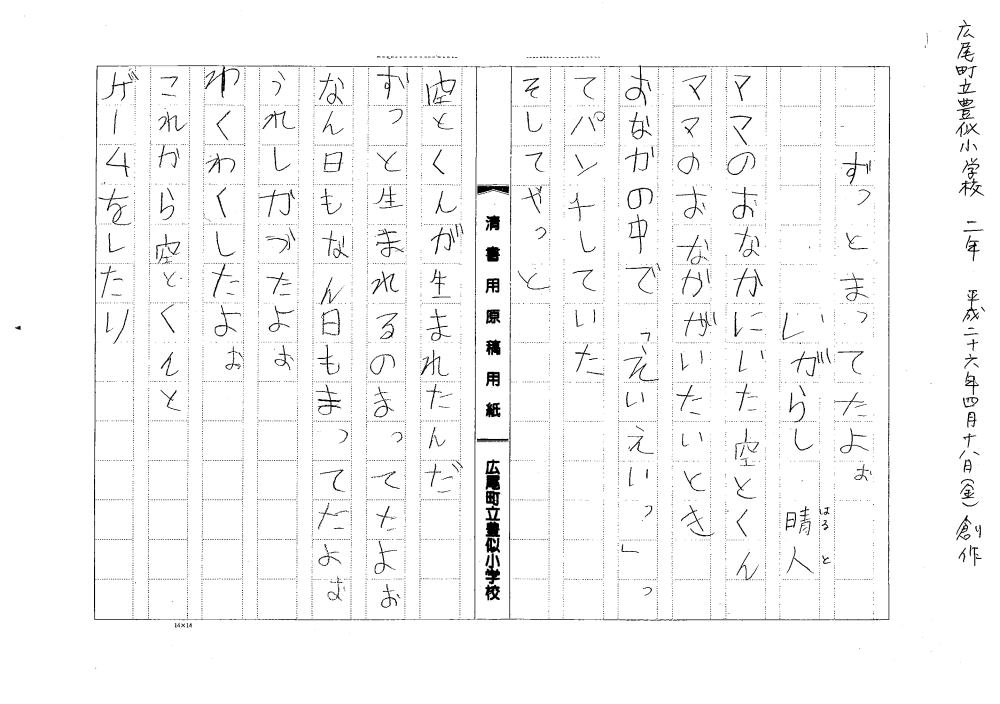 広尾町立豊似小学校　二年　平成二十六年四月十八日(金)創作
ずっとまってたよぉ
いがらし　晴人
はると
ママのおなかにいた空とくん
ママのおなかがいたいとき
おなかの中で「えいえいっ」っ
てパンチしていた
そしてやっと
清書用原稿用紙
広尾町立豊似小学校
空とくんが生まれたんだ
ずっと生まれるのまってたよぉ
なん日もなん日もまってたよぉ
うれしかったよぉ
わくわくしたよぉ
これから空とくんと
ゲームをしたり
14×14